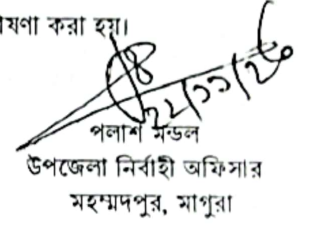 ষণা করা হয়।
২২/১১/২৬
পলাশ মন্ডল
উপজেলা নির্বাহী অফিসার
মহম্মদপুর, মাগুরা